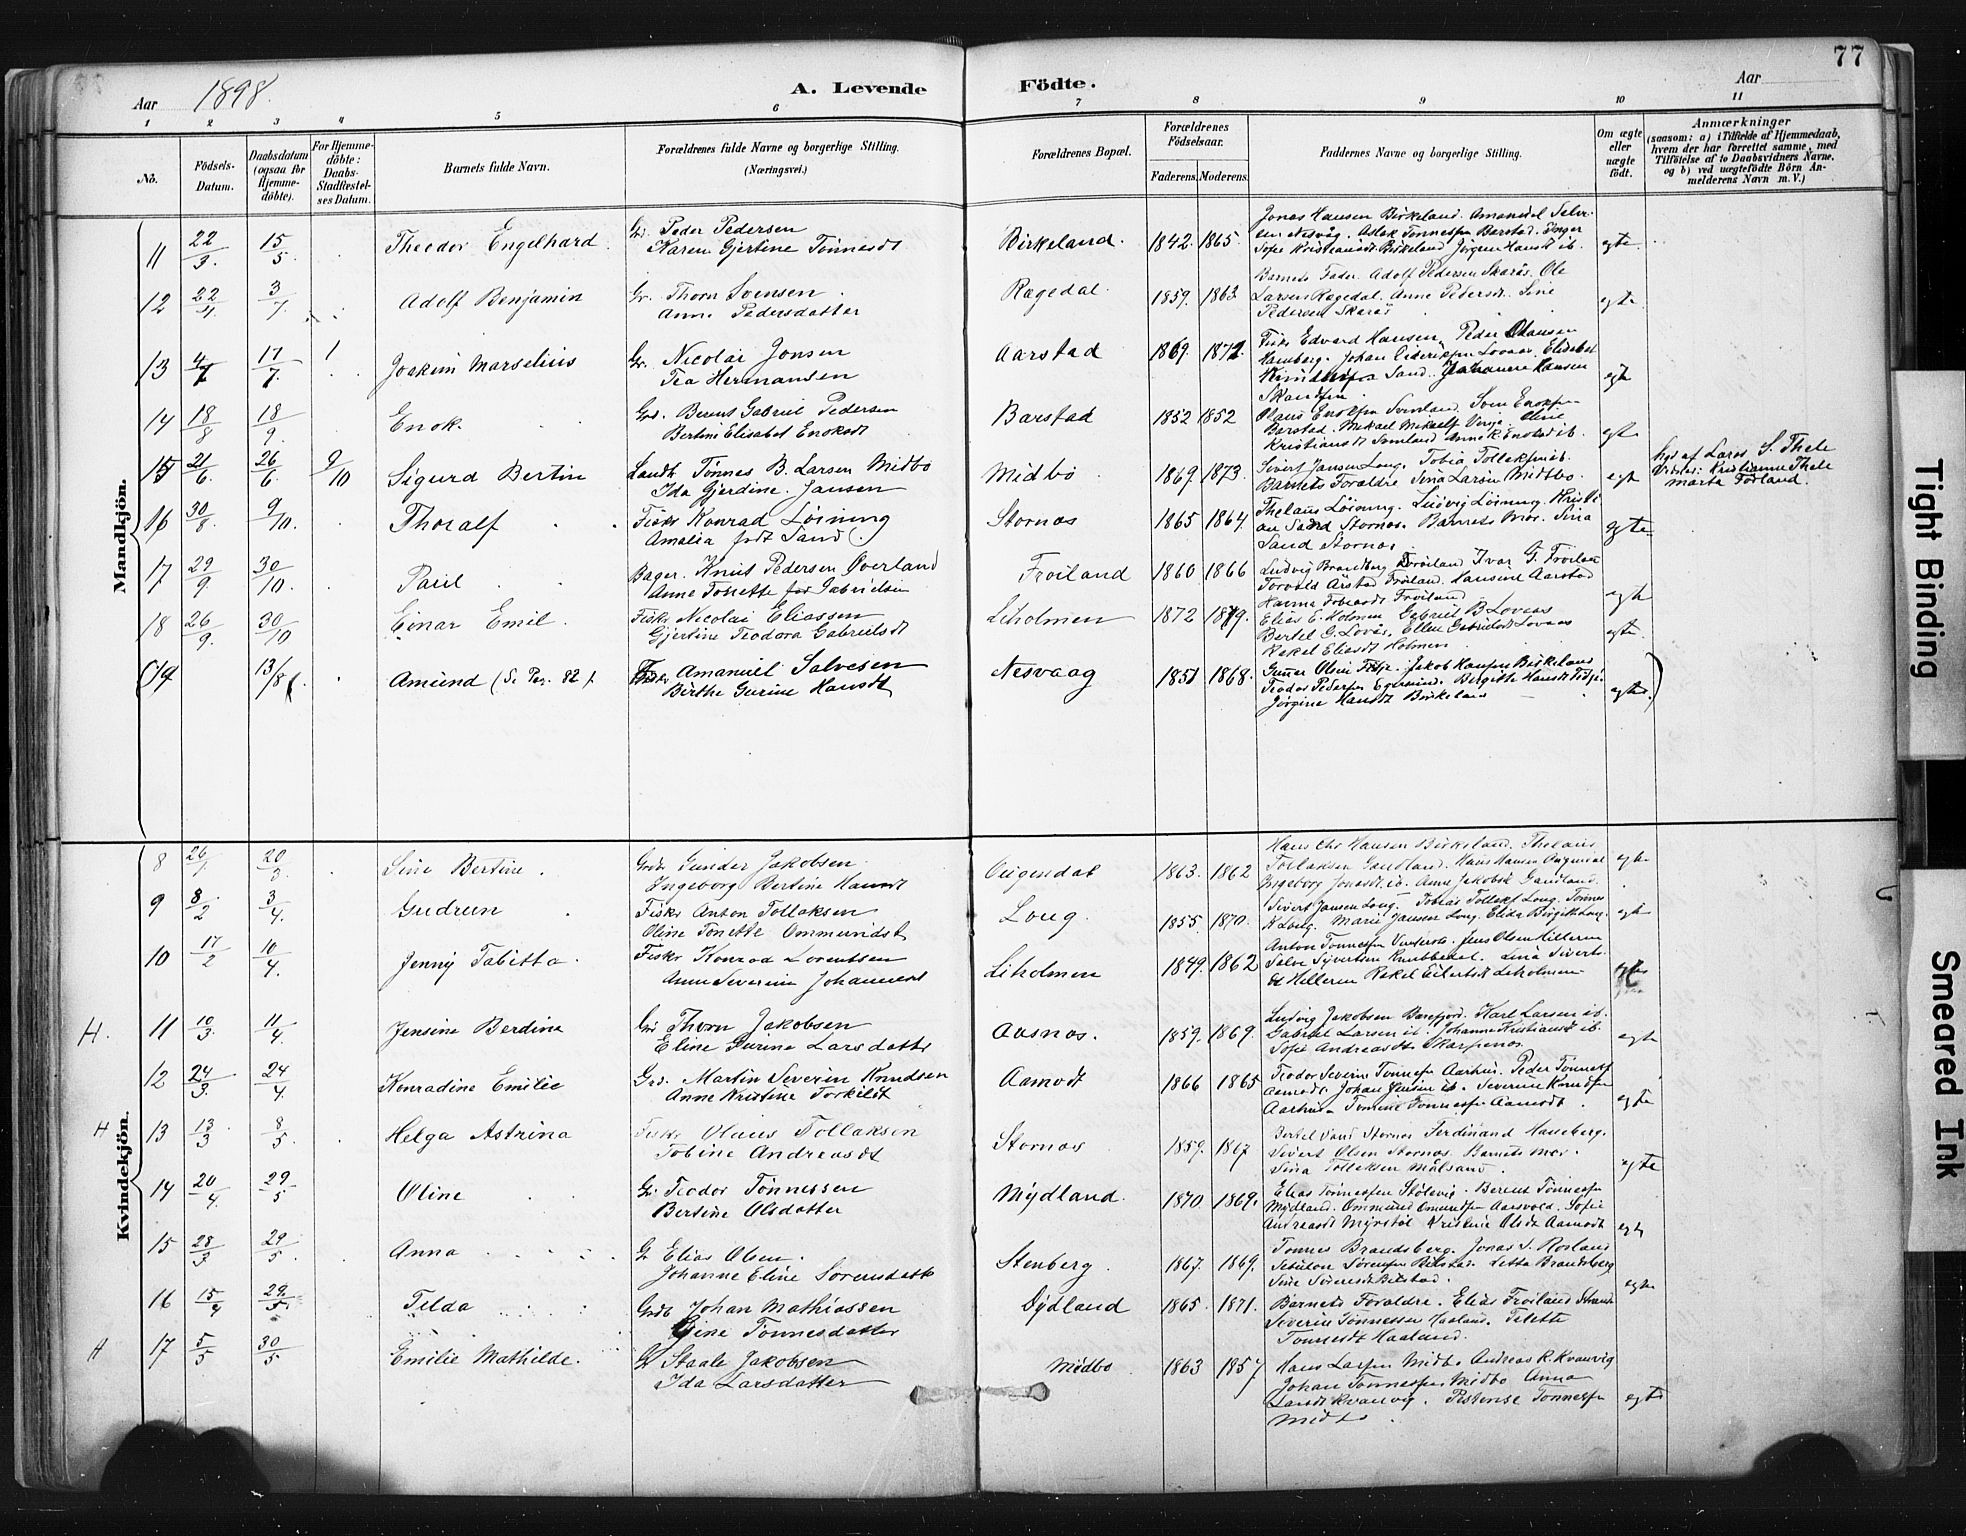 77
Aar 1898.
A. Levende Födte.
Aar
1 2 3 4 5 6 7 8 9 10 11
No.
Födsels-Datum.
Daabsdatum (ogsaa for Hjemme-döbte).
For Hjemme-döbte: Daabs-Stadfæstel-ses Datum.
Barnets fulde Navn.
Forældrenes fulde Navne og borgerlige Stilling. (Næringsvei.)
Forældrenes Bopæl.
Forældrenes Födselsaar.
Faderens. Moderens.
Faddernes Navne og borgerlige Stilling.
Om ægte eller uægte födt.
Anmærkninger
(saasom: a) i Tilfælde af Hjemmedaab, hvem der har forrettet samme, med Tilföielse af to Daabsvidners Navne, og b) ved uægtefödte Börn An-melderens Navn m. V.)
Mandkjön.
11 22/3. 15/5 Theodor Engelhard. Peder Pedersen
Karen Gjertine Tönnesdt
Birkeland. 1842. 1865.
Jonas Hansen Birkeland. Amanuel Salve-
sen Nesvåg. Aslak Tönnesen Berstad. Inger
Sofie Kristiansdt Birkeland Jörgine Hansdt ib.
egte.
12 22/4 3/7. Adolf Benjamin Gr. Thorn Svensen.
Anne Pedersdatter
Rægedal. 1859. 1863
Barnets Fader. Adolf Pedersen Skarås. Ole
Larsen Rægedal. Anne Pedersdt. Sine
Pedersen Skarås
egte.
13 17/7. Joakim Marselius Gr. Nicolai Jonsen
Tea Hermansen
Aarstad 1869. 1872.
Fisker Edvard Hansen, Peder Olausen
Haneberg. Johan Lovaas. Elisabet
Sand. Johanne Hansen
egte
14 18/8 18/9. Enok. Grd. Berent Gabriel Pedersen
Bertine Elisabet Enoksdt
Barstad 1852 1852
Sven Enoksen
Barstad. Mikael Mikaels. Oline
Kristiansdt
egte
15 21/6. 26/6 9/10 Sigurd Bertin Landh. Tönnes B. Larsen Midbö
Ida Gjerdine. Jansen
Midbö 1869. 1873.
Sivert Jansen Loug. Tobia Tollaksen ib.
Barnets Forældre Sina Larsen Midbö.
egte
hjd af Lars S. Thele
Vidner: Kristianne Thele
Marta Förland.
16 30/8. 9/10. Thoralf Fisker Konrad Löining
Amalia födt Sand
Stornæs 1865 1864.
Thelaus Löining. Ludvig Löining. Kristi-
an Sand Stornæs. Barnets Mor. Sina
Sand Stornæs.
egte
17 29/9. 30/10. Paul Bager. Knut Pedersen Överland
Anne Tonette född Gabrielsen
Fröiland 1860 1866
Ludvig Brandberg Fröiland Ivar G. Fröiland
Torvald Årstad Fröiland. Hansine Aarstad
Hanna Tobiasdt Fröiland
egte
18 26/9. 30/10 Einar Emil. Fisker Nicolai Eliassen
Gjertine Teodora Gabrielsdt
Liholmen 1872 1879.
Elias E. Holmen Gabriel B Lovaas
Bertel G. Lovås, Ellen Gabrielsdt Lovaas
Rakel Eliasdt Holmen
egte.
(19 13/8 Amund (Se Pag. 82). Fisker Amanuel Salvesen
Birthe Gurine Hansdt
Nesvaag 1851 1868.
Gunar Olsen. Jakob Hansen Birkeland
Teodor Pedersen Egersund. Birgitte Hansdt
Jörgine Hansdt Birkeland
egte.)
Kvindekjön.
8 26/1. 20/3. Sine Bertine. Grdr Gunder Jakobsen.
Ingeborg Bertine Hansdt
Eigendal 1863. 1862
Hans Chr Hansen Birkeland. Thelaus
Tollaksen Gaudland. Hans Hansen Eigendal
Ingeborg Jonasdt ib. Anne Jakobsdt Gaudland.
egte
9 8/2 3/4. Gudrun Fisker Anton Tollaksen
Oline Tonette Ommundsdt
Loug. 1855. 1870.
Sivert Jansen Loug. Tobias Tollaksen Loug. Tönnes
K Loug. Marie Jansen Loug. Elida Birgitte Loug.
egte
10 17/2 10/4. Jenny Tabitta. Fisker Konrad Lorentsen
Anne Severine Johannesdt
Liholmen 1849. 1862
Anton Tönnesen. Jens Olsen Hilleren
Salve Syvertsen Knubbedal. Lina Siverts-
dt Hilleren Rakel Eilertsdt Liholmen
egte
H. 11 10/3. 11/4. Jensine Berdina Grd Thorn Jakobsen
Eline Gurine Larsdatter
Aasnæs. 1859. 1869.
Ludvig Jakobsen Barefjord. Karl Larsen ib.
Gabriel Larsen ib. Johanne Kristiansdt ib.
Sofie Andreasdt Skarpenæs.
egte
12 24/3. 24/4. Konradine Emilie Grd. Martin Severin Knudsen
Anne Kristine Torkilsdt
Aamodt 1866 1865
Teodor Severin Tönnesen Aarhus. Peder Tönnesen
Aamodt. Johan Jensen ib. Severine Knudsen
Aarhus Tomine Tönnesen Aamodt.
egte
H 13 13/3 8/5. Helga Astrina Fisker Olaus Tollaksen
Tobine Andreasdt
Stornæs 1859. 1867
Bertel Sand Stornæs Ferdinand Haneberg.
Sivert Olsen Stornæs. Barnets Mor.
Sina Tollaksen Målsand.
egte
14 20/4. 29/5 Oline Gr. Teodor Tönnessen
Bertine Olsdatter
Mydland. 1870 1869.
Elias Tönnessen Stölevig. Berent Tönnesen
Mydland. Ommund Omundsen Aarsvold. Sofie
Andreasdt Myrstöl Kristine Olsdt Aamodt
egte
15 28/3 29/5. Anna Gr Elias Olsen.
Johanne Eline Sörensdatter
Stenberg. 1867. 1869.
Tönnes Brandsberg. Jonas S. Rosland
Sebulon Sörensen Bilstad. Jetta Brandsberg
Sine Sörensdt Bilstad.
egte
16 15/4 29/5. Tilda Grdb Johan Mathiassen
Gine Tönnesdatter
Dydland 1865. 1871.
Barnets Forældre. Elias Fröiland Strand
Severin Tönnessen Haaland. Teletta
Tönnesdt Haaland.
H 17 5/5 30/5 Emilie Mathilde. Gr Staale Jakobsen
Ida Larsdatter
Midbö 1863 1857
Hans Larsen Midbö Andreas R. Kvanvig
Johan Tönnessen Midbö Anna
Larsdt Kvanvig. Tönnesen
Midbö.
egte
Tight Binding
Smeared Ink